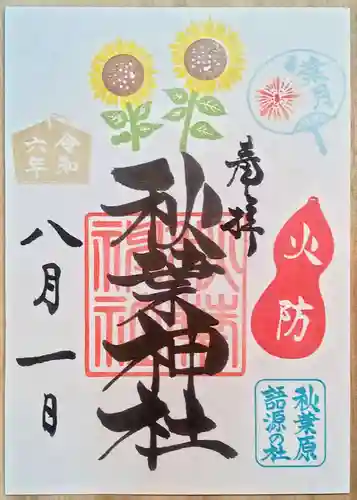 葉月
奉拝
火防
秋葉原
語源の社
秋葉神社
令和
六年
八月一日